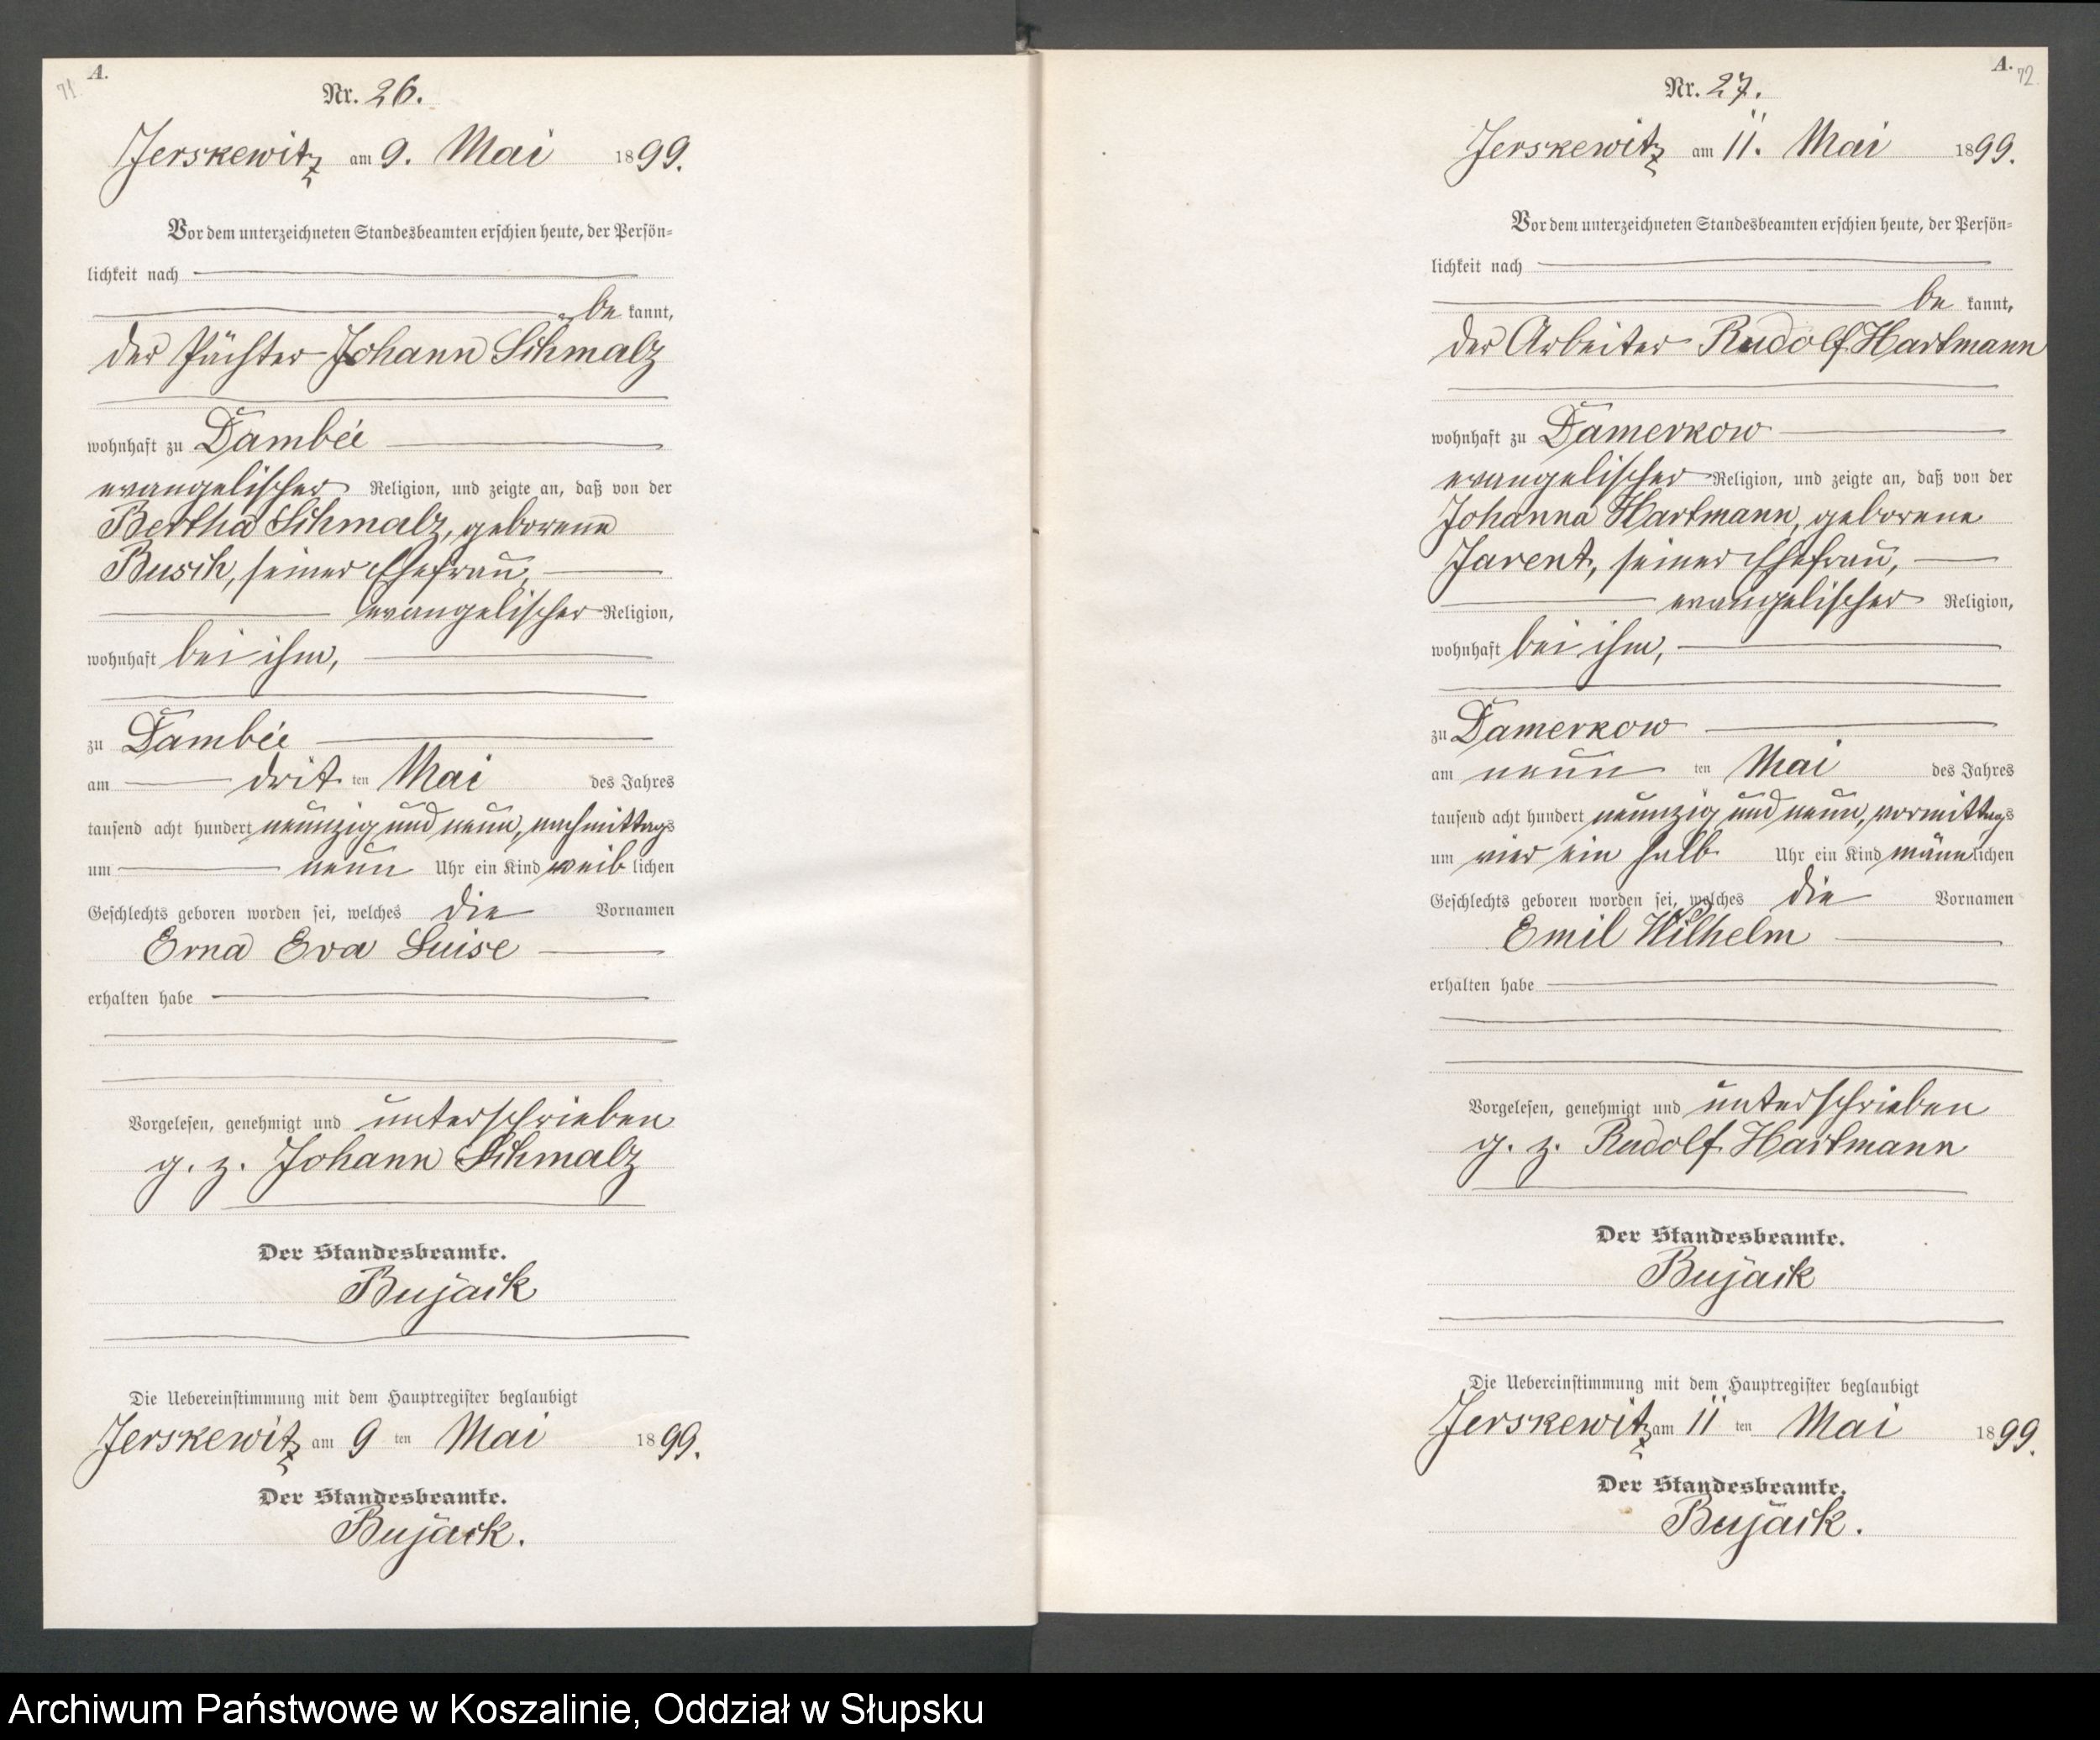 A.
71.
Nr. 26.
Jerskewitz am 9. Mai 1899.
Vor dem unterzeichneten Standesbeamten erschien heute, der Persön-
lichkeit nach
be kannt,
der Pächter Johann Schmalz
wohnhaft zu Dambee
evangelischer Religion, und zeigte an, daß von der
Bertha Schmalz, geborene
Busch, seiner Ehefrau,
evangelischer Religion,
wohnhaft bei ihm,
zu Dambee
am drit ten Mai des Jahres
tausend acht hundert neunzig und neun, nachmittags
um neun Uhr ein Kind weib lichen
Geschlechts geboren worden sei, welches die Vornamen
Erna Eva Luise
erhalten habe
Vorgelesen, genehmigt und unterschrieben
g. z. Johann Schmalz
Der Standesbeamte.
Bujack
Die Uebereinstimmung mit dem Hauptregister beglaubigt
Jerskewitz am 9 ten Mai 1899.
Der Standesbeamte.
Bujack.
A.
72.
Nr. 27.
Jerskewitz am 11. Mai 1899.
Vor dem unterzeichneten Standesbeamten erschien heute, der Persön-
lichkeit nach
be kannt,
der Arbeiter Rudolf Hartmann
wohnhaft zu Damerkow
evangelischer Religion, und zeigte an, daß von der
Johanna Hartmann, geborene
Jarent, seiner Ehefrau,
evangelischer Religion,
wohnhaft bei ihm,
zu Damerkow
am neun ten Mai des Jahres
tausend acht hundert neunzig und neun, vormittags
um vier ein halb Uhr ein Kind männ lichen
Geschlechts geboren worden sei, welches die Vornamen
Emil Wilhelm
erhalten habe
Vorgelesen, genehmigt und unterschrieben
g. z. Rudolf Hartmann
Der Standesbeamte.
Bujack
Die Uebereinstimmung mit dem Hauptregister beglaubigt
Jerskewitz am 11 ten Mai 1899.
Der Standesbeamte.
Bujack.
Archiwum Państwowe w Koszalinie, Oddział w Słupsku